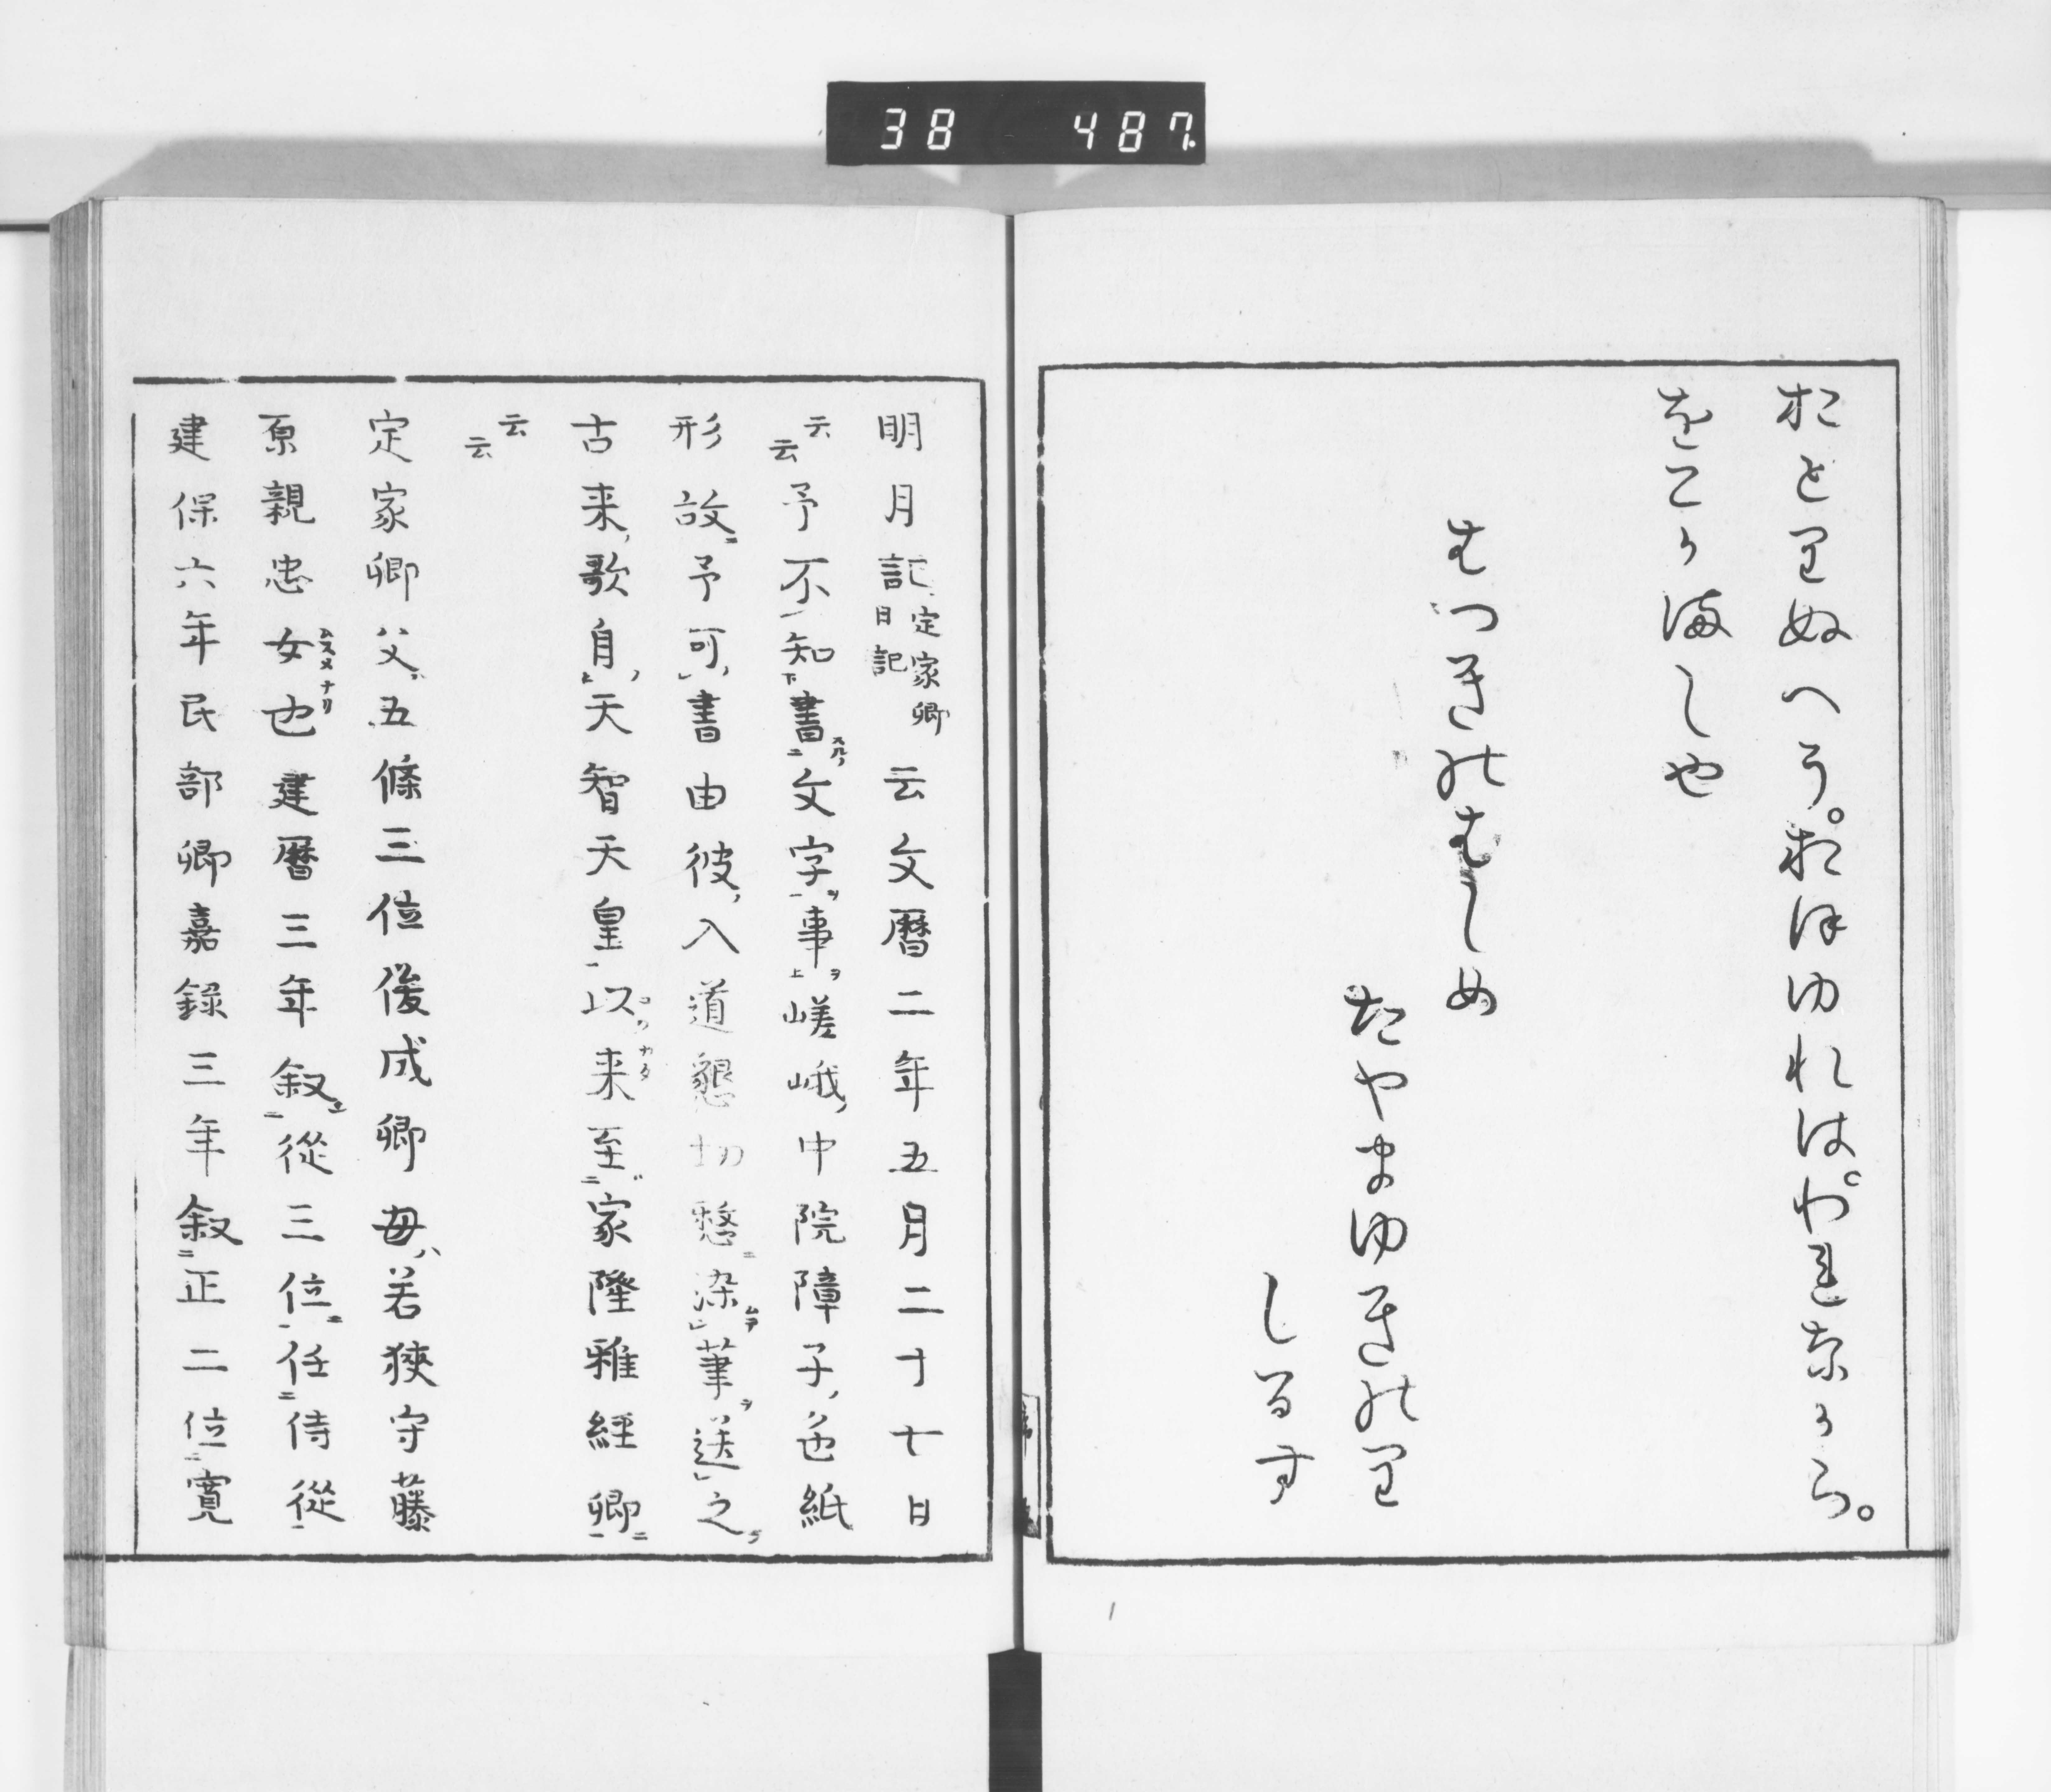 38 487
おとりぬへう。おほゆれは。われなから。
をこかましや
はつきのはしめ
たやまゆきのり
しるす
明月記定家卿日記云文暦二年五月二十七日
云云予不知書文字事嵯峨中院障子色紙
形故予可書由彼入道懇切憖染筆送之
古来歌自天智天皇以来至家隆雅経卿
云云
定家卿父五條三位俊成卿母若狹守藤
原親忠女也建暦三年叙從三位任侍從
建保六年民部卿嘉録三年叙正二位寛